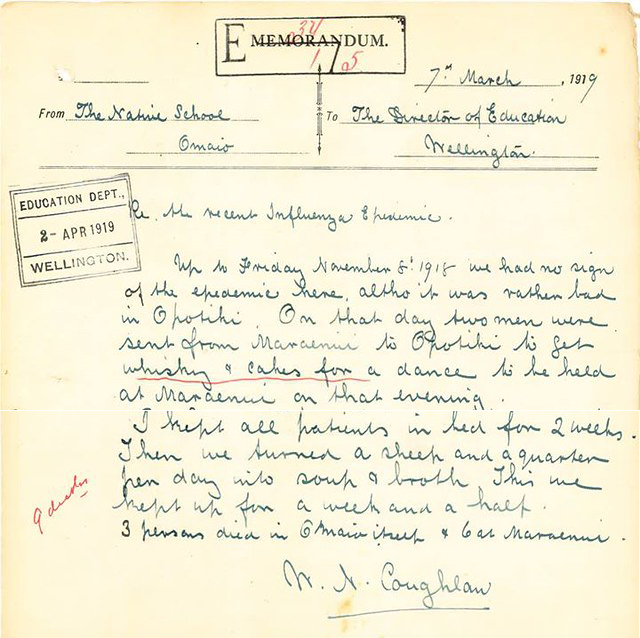 E MEMORANDUM.
37/
1/5
7th March, 1919
From The Native School
Omaio
To The Director of Education
Wellington.
EDUCATION DEPT.,
2- APR 1919
WELLINGTON.
Re. the recent Influenza Epedemic.
Up to Friday November 8t 1918 we had no sign
of the epedemic here, altho it was rather bad
in Opotiki. On that day two men were
sent from Maraenui to Opotiki to get
whisky & cakes for a dance to be held
at Maraenui on that evening.
I kept all patients in bed for 2 weeks.
Then we turned a sheep and a quarter
per day into soup & broth. This we
kept up for a week and a half.
9 deaths
3 persons died in Omaio itself & 6 at Maraenui.
W. N. Coughlan